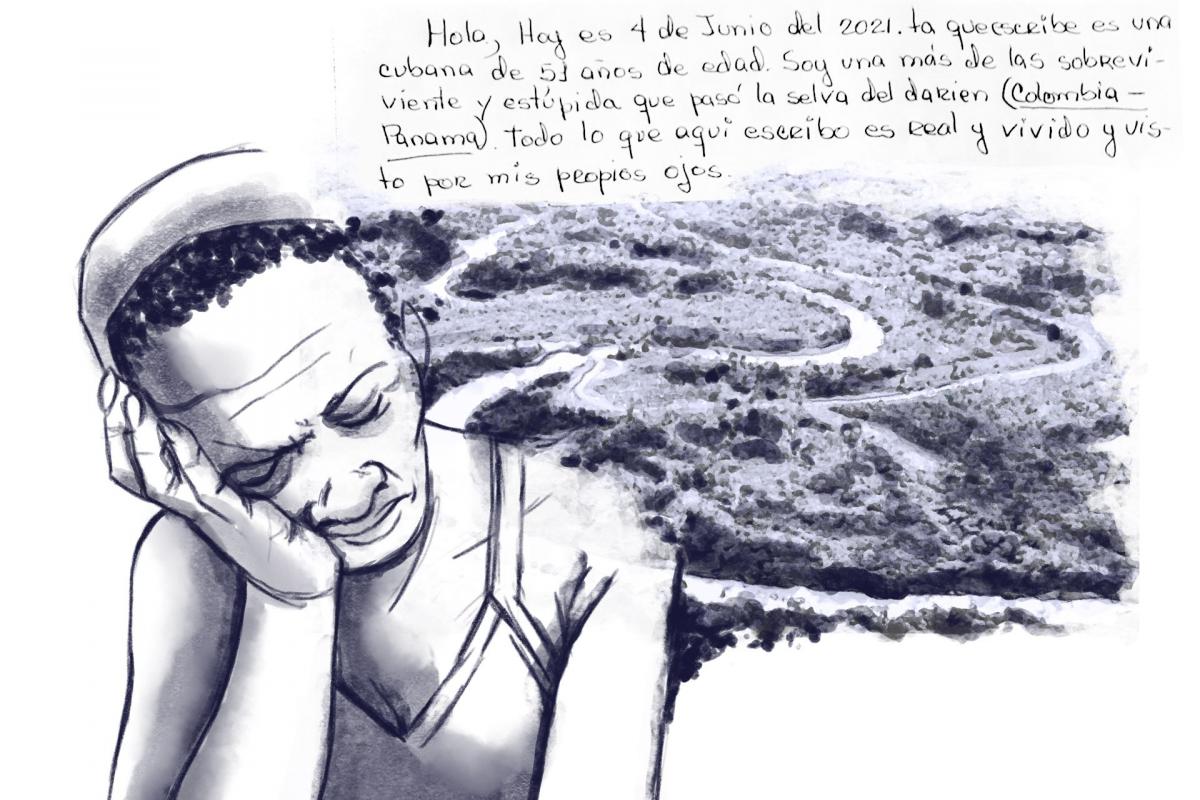 Hola, Hoy es 4 de Junio del 2021. La que escribe es una
cubana de 51 años de edad. Soy una más de las sobrevi-
viente y estúpida que pasó la selva del darien (Colombia -
Panama). todo lo que aqui escribo es real y vivido y vis-
to por mis propios ojos.